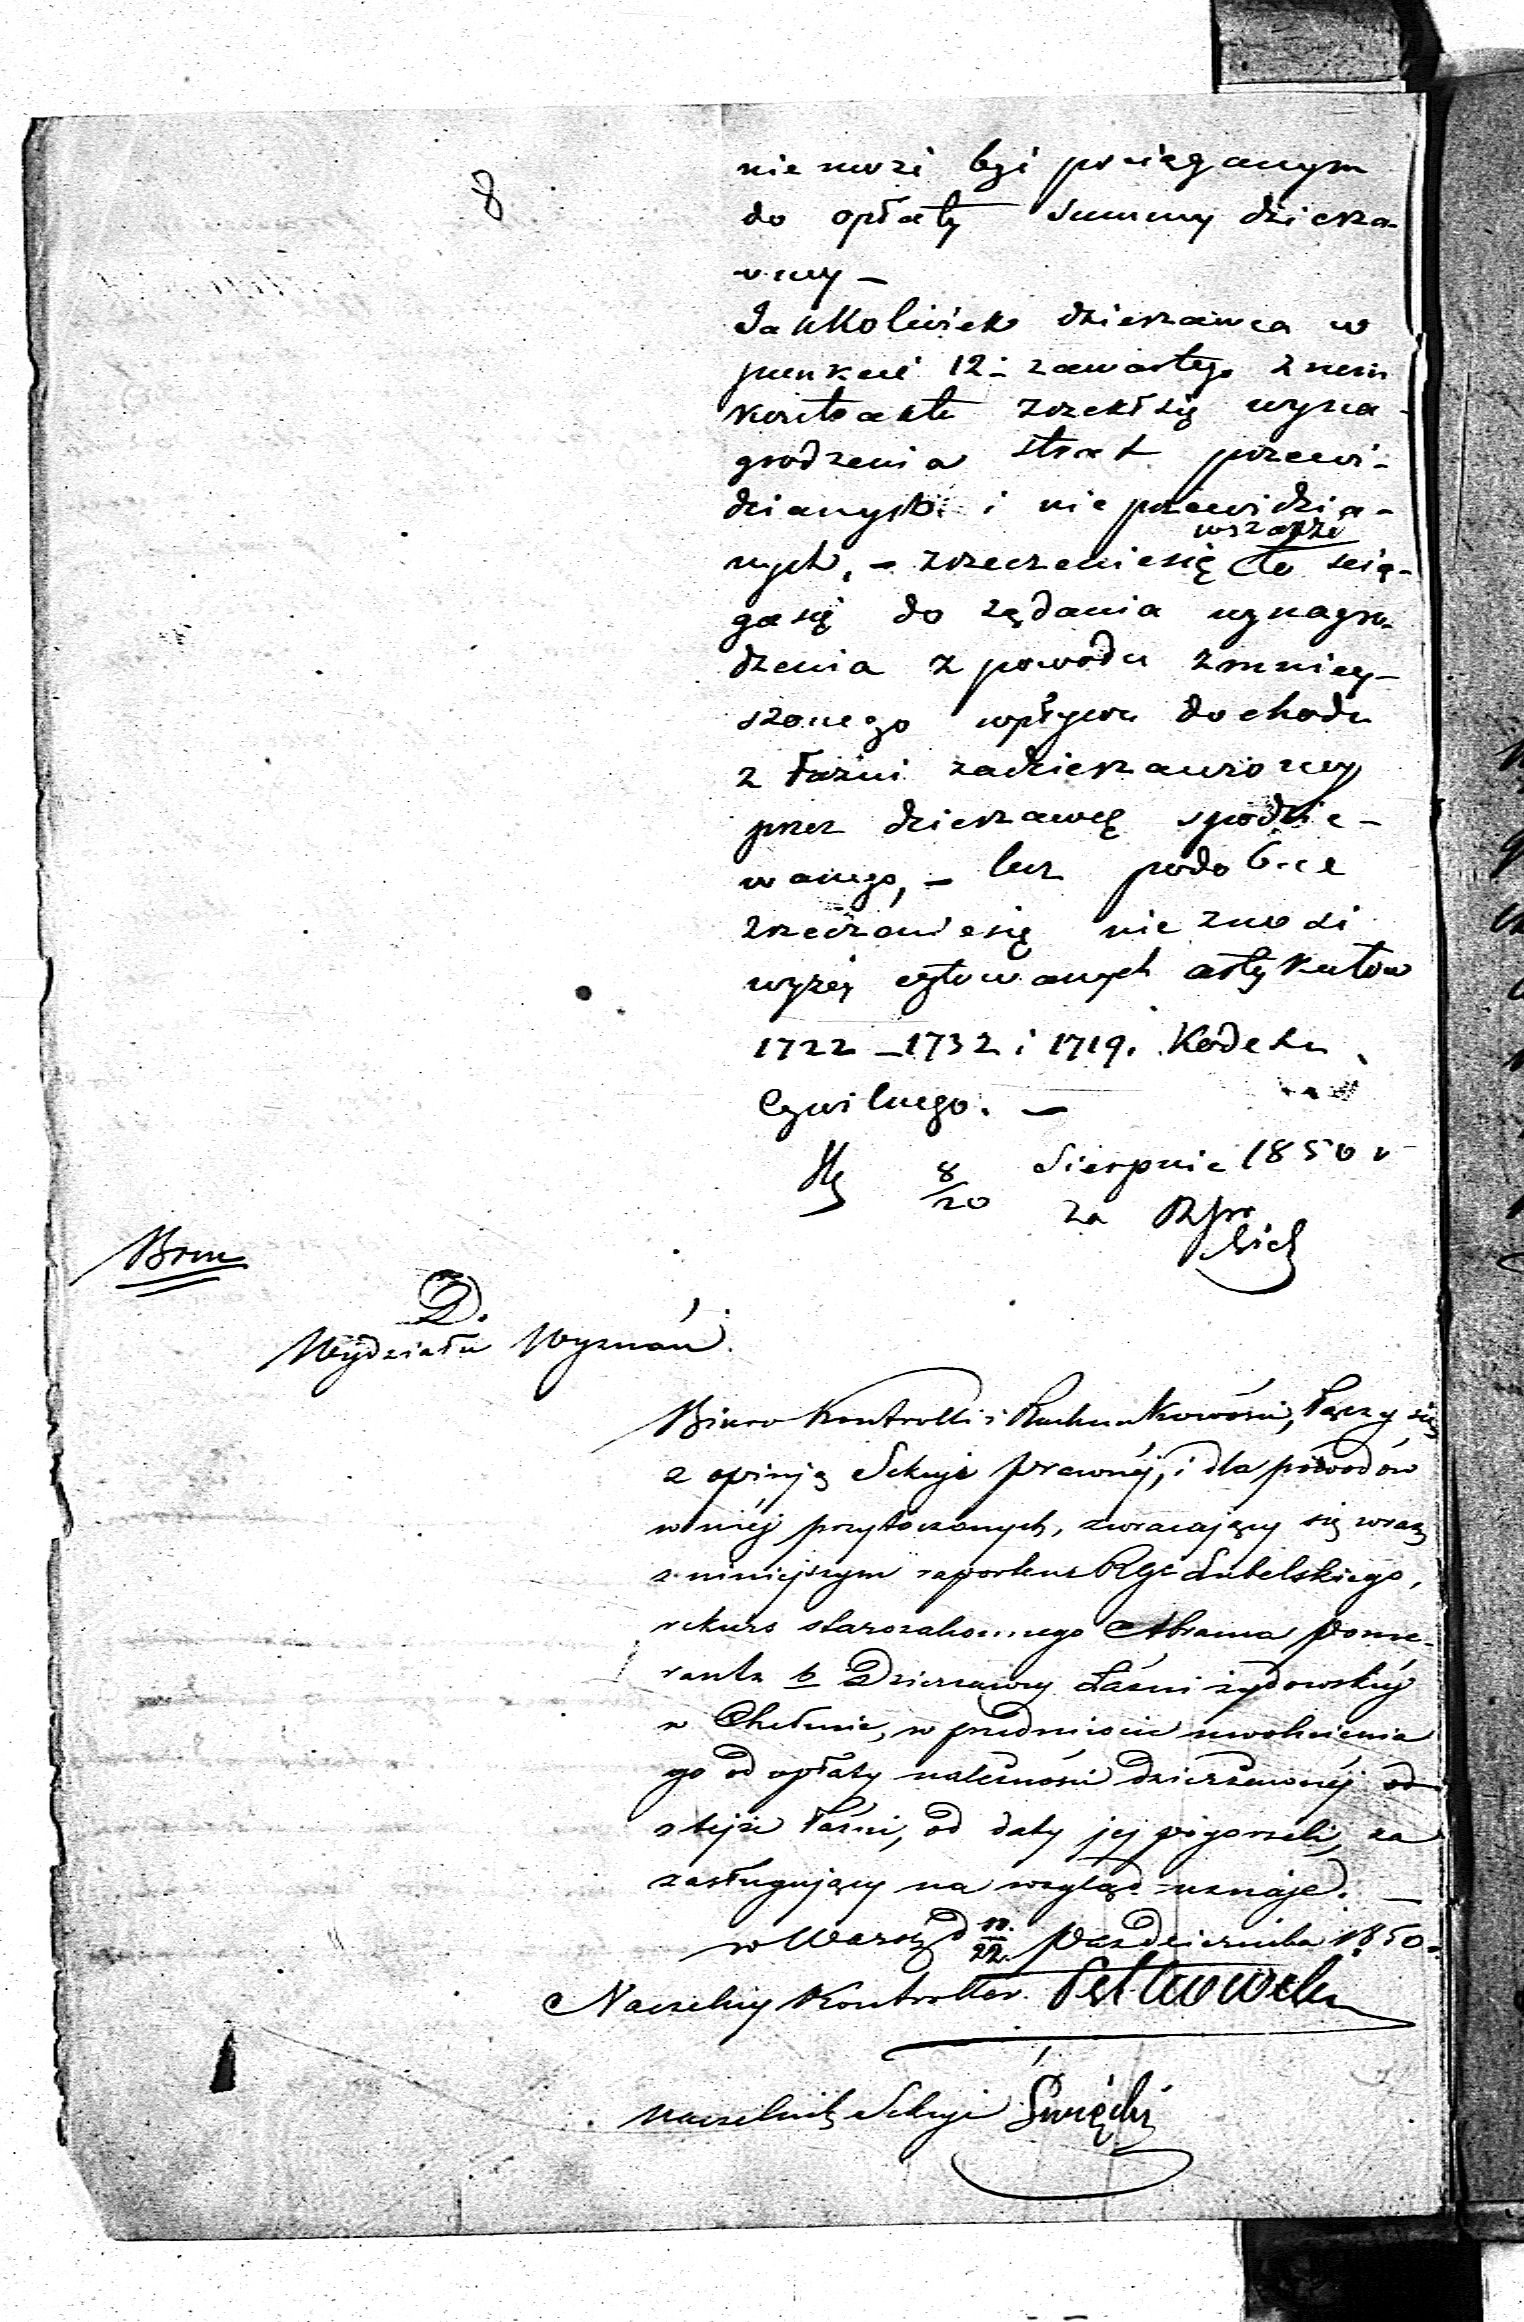 8
nie może być pociąganym
do opłaty summy dzierża-
wney –
Jakkolwiek dzierżawca w
punkcie 12 – zawartego z nim
kontraktu zrzekł się wyna-
grodzenia strat przewi-
dzianych i nie przewidzia-
wszakże
nych, – zrzeczenie się to ścią-
ga się do żądania wynagro-
dzenia z powodu zmniey-
szonego wpływu dochodu
z łaźni zadzierzawioney
przez dzierżawcę spodzie-
wanego, – lecz podobne
zrzeczenie się nie znosi
wyżej cytowanych artykułów
1722 – 1732 i 1719. Kodexu
Cywilnego. –
8/20 Sierpnia 1850 r
za
D.
Wydziału Wyznań.
Biuro Kontrolli i Rachunkowości, łączy się
z opinją Sekcyi prawnéj, i dla powodów
w niéj przytoczonych, zwracający się wraz
z niniejszym raportem Rgu Lubelskiego,
rekurs starozakonnego Abrama Pome-
rantz b. Dzierżawcy Łaźni żydowskiéj
w Chełmie, w przedmiocie uwolnienia
go od opłaty należności dzierżawnéj od
tejże łaźni, od daty jej pogorzeli, za
zasługujący na wzgląd uznaje. –
w Warsz d 10./22. Października 1850.
Naczelny Kontroller.
Naczelnik Sekcyi Święcki